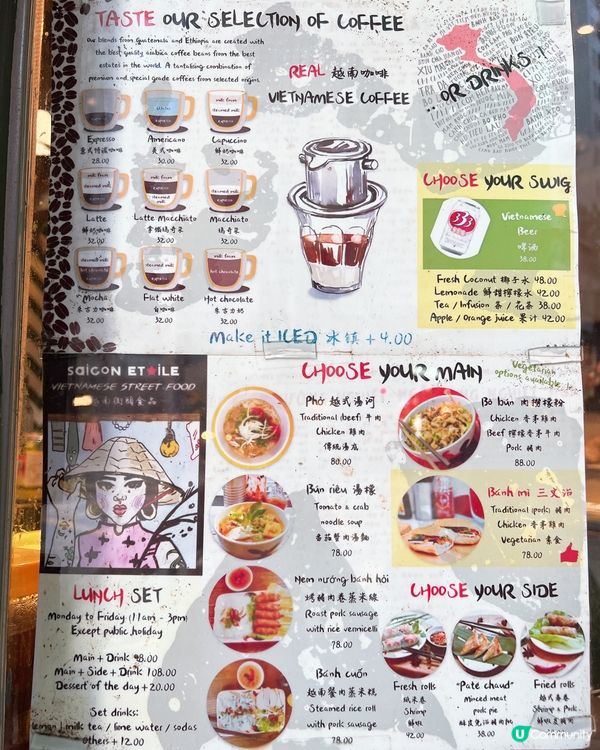 TASTE OUR SELECTION OF COFFEE
Our blends from Guatemala and Ethiopia are created with
the best quality arabica coffee beans from the best
estates in the world. A tantalising combination of
premium and special grade coffees from selected origins.
REAL 越南咖啡
VIETNAMESE COFFEE
...OR DRINKS...!
Espresso
意式特濃咖啡
28.00
Americano
美式咖啡
30.00
Capuccino
鮮奶咖啡
32.00
Latte
鮮奶咖啡
32.00
Latte Macchiato
拿鐵瑪奇朵
32.00
Macchiato
瑪奇朵
32.00
Mocha
朱古力咖啡
32.00
Flat white
白咖啡
32.00
Hot chocolate
朱古力奶
32.00
Make it ICED 冰鎮 + 4.00
CHOOSE YOUR SWIG
333
Vietnamese
Beer
啤酒
38.00
Fresh Coconut 椰子水 48.00
Lemonade 鮮甜檸檬水 42.00
Tea / Infusion 茶 / 花茶 38.00
Apple / Orange juice 果汁 42.00
SAIGON ETOILE
VIETNAMESE STREET FOOD
越南街頭食品
CHOOSE YOUR MAIN
Vegetarian
options available
Phở 越式湯河
Traditional (beef) 牛肉
Chicken 雞肉
傳統湯底
80.00
Bò bún 肉撈檬粉
Chicken 香茅雞肉
Beef 檸檬香茅牛肉
Pork 豬肉
88.00
Bún riêu 湯檬
Tomato & crab
noodle soup
番茄蟹肉湯麵
78.00
Bánh mì 三文治
Traditional (pork) 豬肉
Chicken 香茅雞肉
Vegetarian 素食
78.00
Nem nướng bánh hỏi
烤豬肉卷蒸米線
Roast pork sausage
with rice vermicelli
78.00
Bánh cuốn
越南蟹肉蒸米糕
Steamed rice roll
with pork sausage
78.00
LUNCH SET
Monday to Friday (11am - 3pm)
Except public holiday
Main + Drink 98.00
Main + Side + Drink 108.00
Dessert of the day + 20.00
Set drinks:
lemon / milk tea / lime water / sodas
others + 12.00
CHOOSE YOUR SIDE
Fresh rolls
紙米卷
Shrimp
鮮蝦
42.00
"Pate chaud"
Minced meat
pork pie
38.00
Fried rolls
越式春卷
Shrimp
42.00
U Community